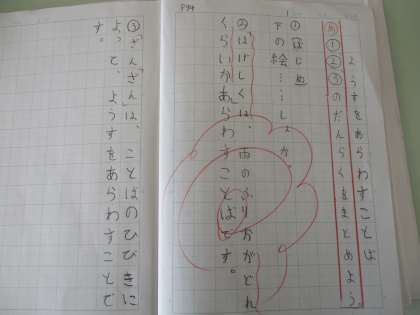 P94
ようすをあらわすことば
め①②③のだんらくをまとめよう。
①はじめ
下の絵……しょうか。
②「はげしく」は、雨のふりかたがどれ
くらいかあらわすことばです。
③「ざんざん」は、ことばのひびきに
よって、ようすをあらわすことばで
す。